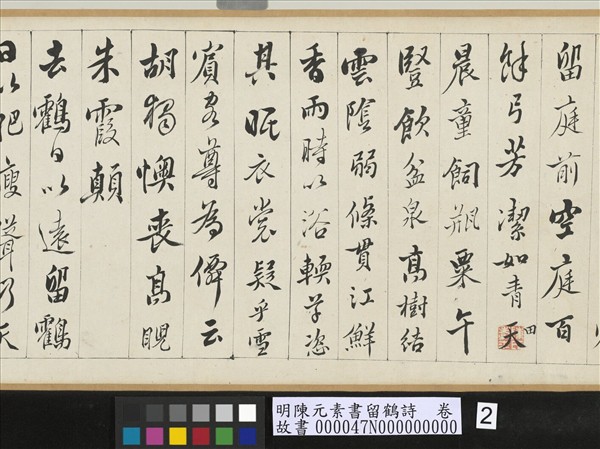 留庭前空庭百
餘弓芳潔如青天
四
晨童飼瓶粟午
豎飲盆泉高樹結
雲陰弱條貫江鮮
香雨時以浴輭草恣
其眠衣裳疑乎雪
賓客尊為僊云
胡獨懊喪高睨
朱霞顛
去鶴日以遠留鶴
日以肥聲乃天
明陳元素書留鶴詩 卷
故書000047N000000000
2